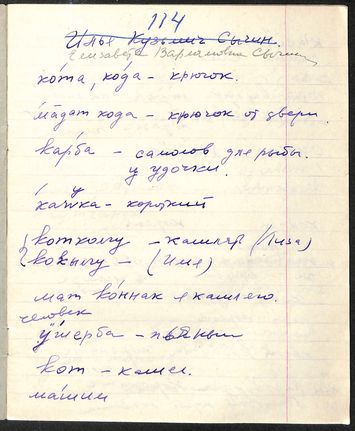 114
Илья Кузьмич Сычин.
Елизавета Варламовна Сычин
ко́та, кода – крючок.
ма̄дат кода – крючок от двери.
карба – самолов для рыбы.
у удочки.
ка́чука – короткий
ко́ткомгу – кашлять (Лиза)
ко́выгу – (Илья)
мат ко́ннак я кашляю.
человек
ӱ́терба – пьяный
кот – кашел.
ма́шим